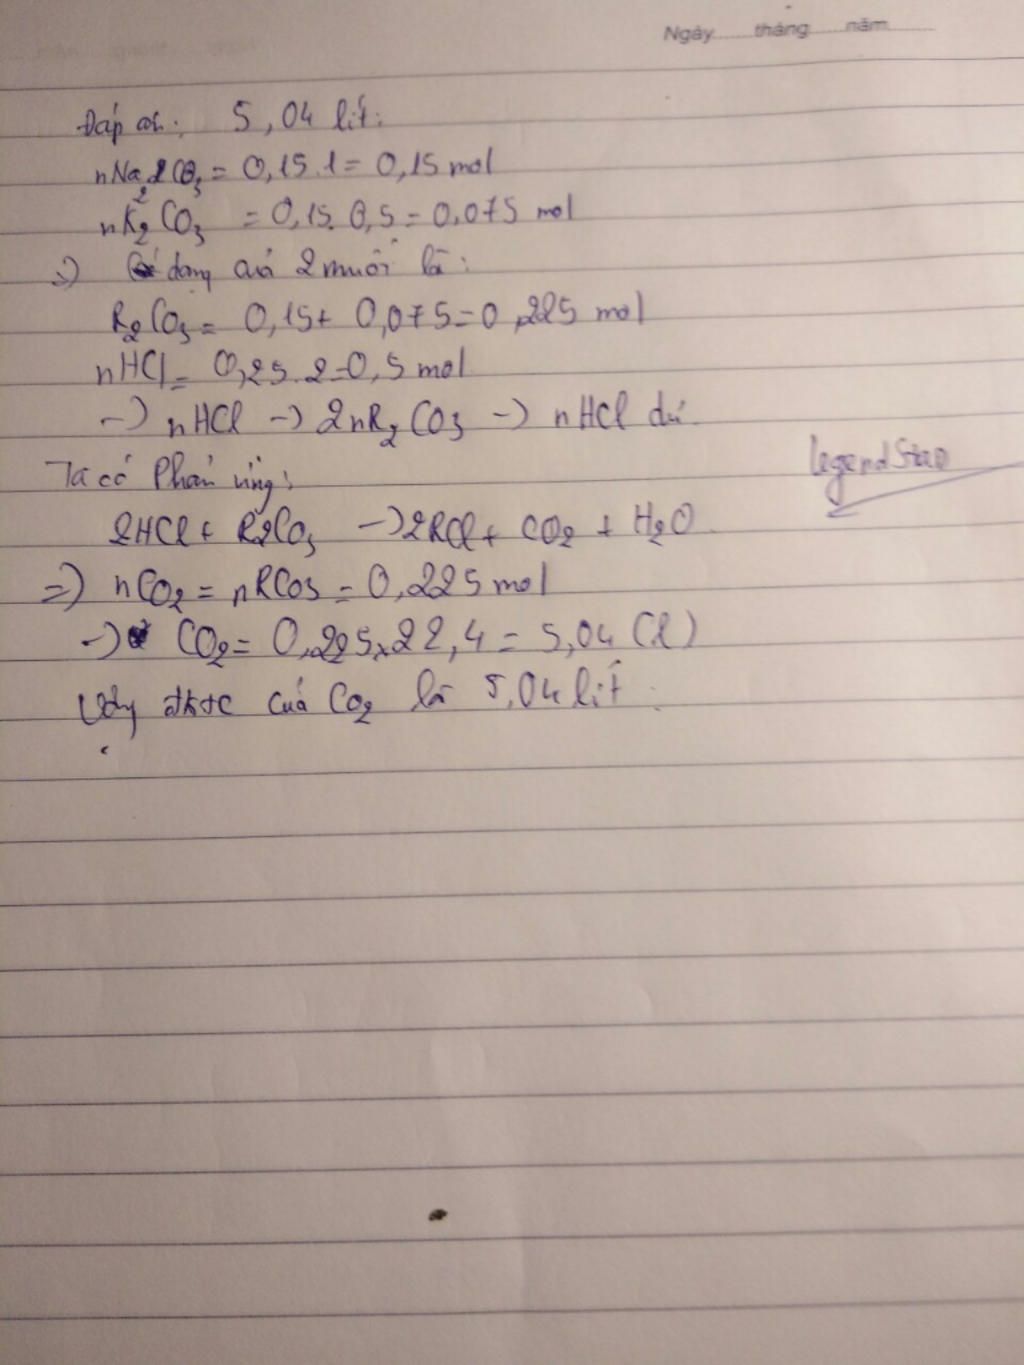 Ngày tháng năm
Đáp án: 5,04 lít:
nNa2CO3 = 0,15.1 = 0,15 mol
nK2CO3 = 0,15.0,5 = 0,075 mol
=) dạng của 2 muối là:
R2CO3 = 0,15+ 0,075=0,225 mol
nHCl = 0,25.2=0,5 mol
-) nHCl -) 2nR2CO3 -) nHCl dư.
Ta có Phản ứng:
LegendStar
2HCl + R2CO3 -) 2RCl + CO2 + H2O
=) nCO2 = nRCO3 = 0,225 mol
-) CO2 = 0,225x22,4 = 5,04 (l)
Vậy của CO2 là 5,04 lít.